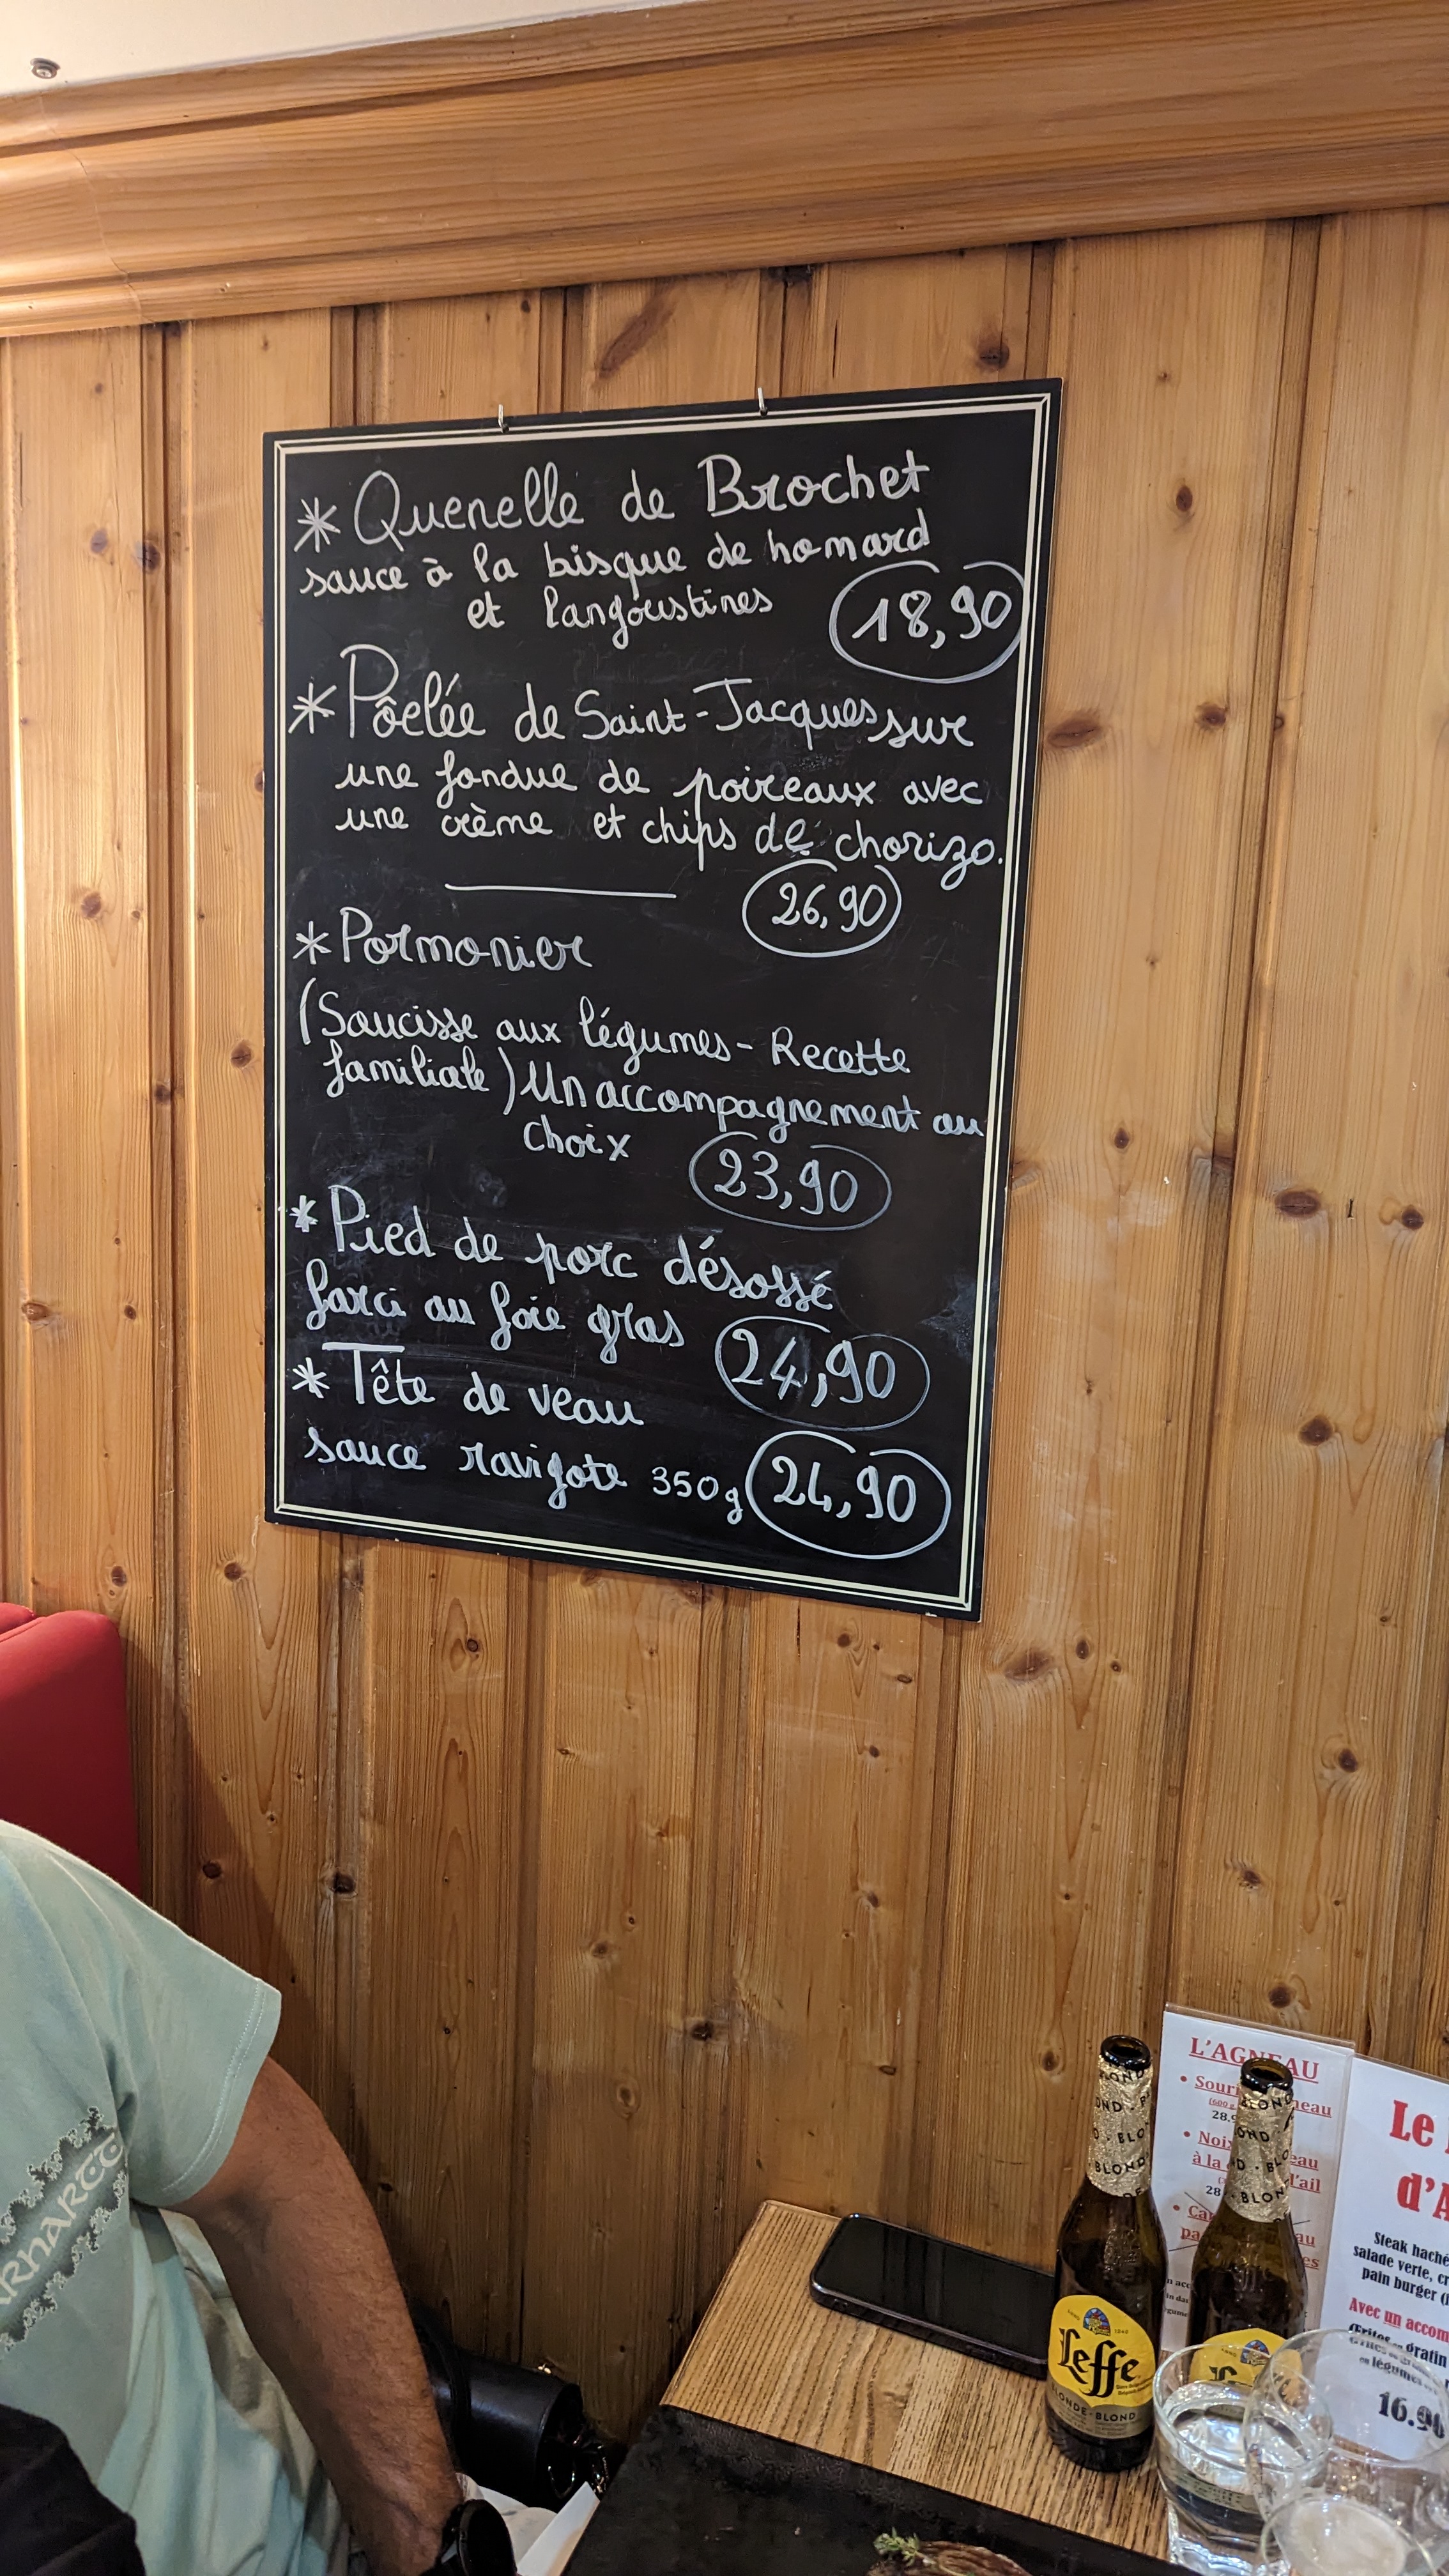 * Quenelle de Brochet
sauce à la bisque de homard
et langoustines 18,90
* Pôelée de Saint-Jacques sur
une fondue de poireaux avec
une crème et chips de chorizo.
26,90
* Pormonier
(Saucisse aux légumes - Recette
familiale) Un accompagnement au
choix 23,90
* Pied de porc désossé
farci au foie gras 24,90
* Tête de veau
sauce ravigote 350g 24,90
L'AGNEAU
• Souri
28.9
• Noix
à la d'ail
28
Le
d'A
Steak haché
salade verte, cr
pain burger (
Avec un accom
gratin
légumes
16.90
BLOND
BLOND
Leffe
BLONDE·BLOND